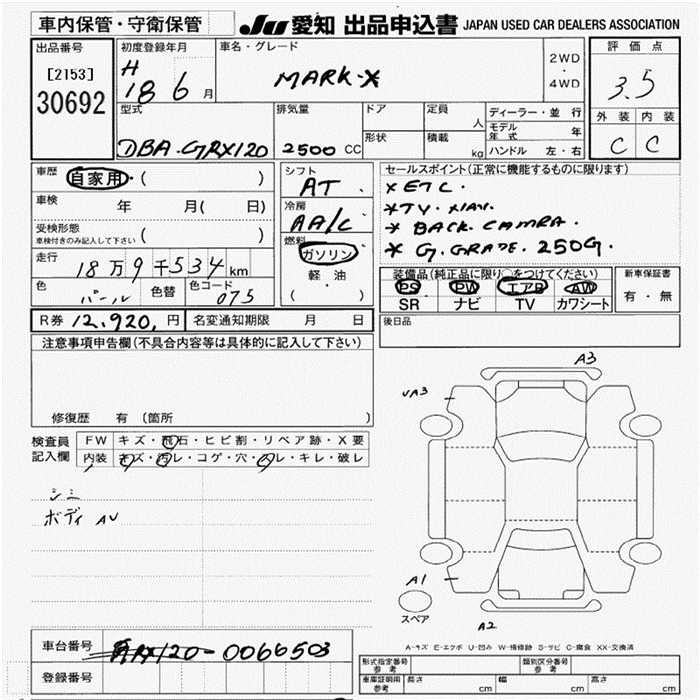 車内保管・守衛保管
JU 愛知 出品申込書 JAPAN USED CAR DEALERS ASSOCIATION
出品番号
[2153]
30692
初度登録年月
H
18 6 月
車名・グレード
MARK-X
2WD
・
4WD
評価点
3.5
外装 内装
C C
型式
DBA・GRX120
排気量
2500 CC
ドア
形状
定員
人
積載
kg
ディーラー・並行
モデル年式 年
ハンドル 左・右
車歴
自家用・( )
車検 年 月( 日)
受検形態
車検付きのみ記入して下さい ( )
走行
18万9千534km
色
パール
色替
色コード
075
シフト
AT
冷房
AA/C
燃料
ガソリン
軽油
( )
セールスポイント(正常に機能するものに限ります)
×ETC.
*TV. NAV.
* BACK. CAMRA.
* G.GRADE. 250G.
装備品(純正品に限り○をつけてください)
PS PW エアB AW
SR ナビ TV カワシート
新車保証書
有・無
R券 12,920,円
名変通知期限 月 日
後日品
注意事項申告欄(不具合内容等は具体的に記入して下さい)
修復歴 有 (箇所 )
検査員
記入欄
FW キズ・飛石・ヒビ割・リペア跡・X要
内装 キズ・汚レ・コゲ・穴・スレ・キレ・破レ
シミ
ボディ AU
A3
UA3
A1
スペア
A2
A-キズ E-エクボ U-凹み W-補修跡 S-サビ C-腐食 XX-交換済
車台番号
GRX120-0066503
登録番号
形式指定番号
参考
類別区分番号
参考
車庫証明用
参考
長さ cm
幅 cm
高さ cm